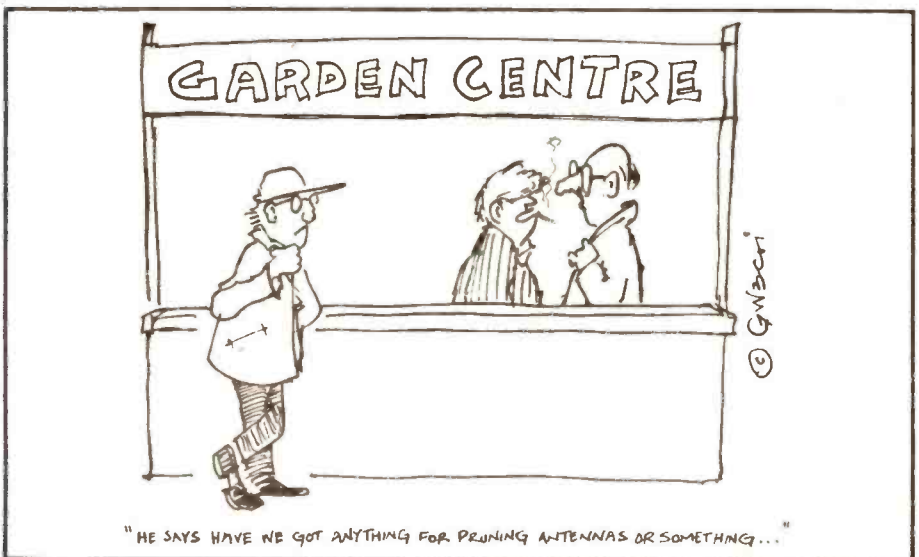 GARDEN CENTRE
© GW3COI
"HE SAYS HAVE WE GOT ANYTHING FOR PRUNING ANTENNAS OR SOMETHING..."